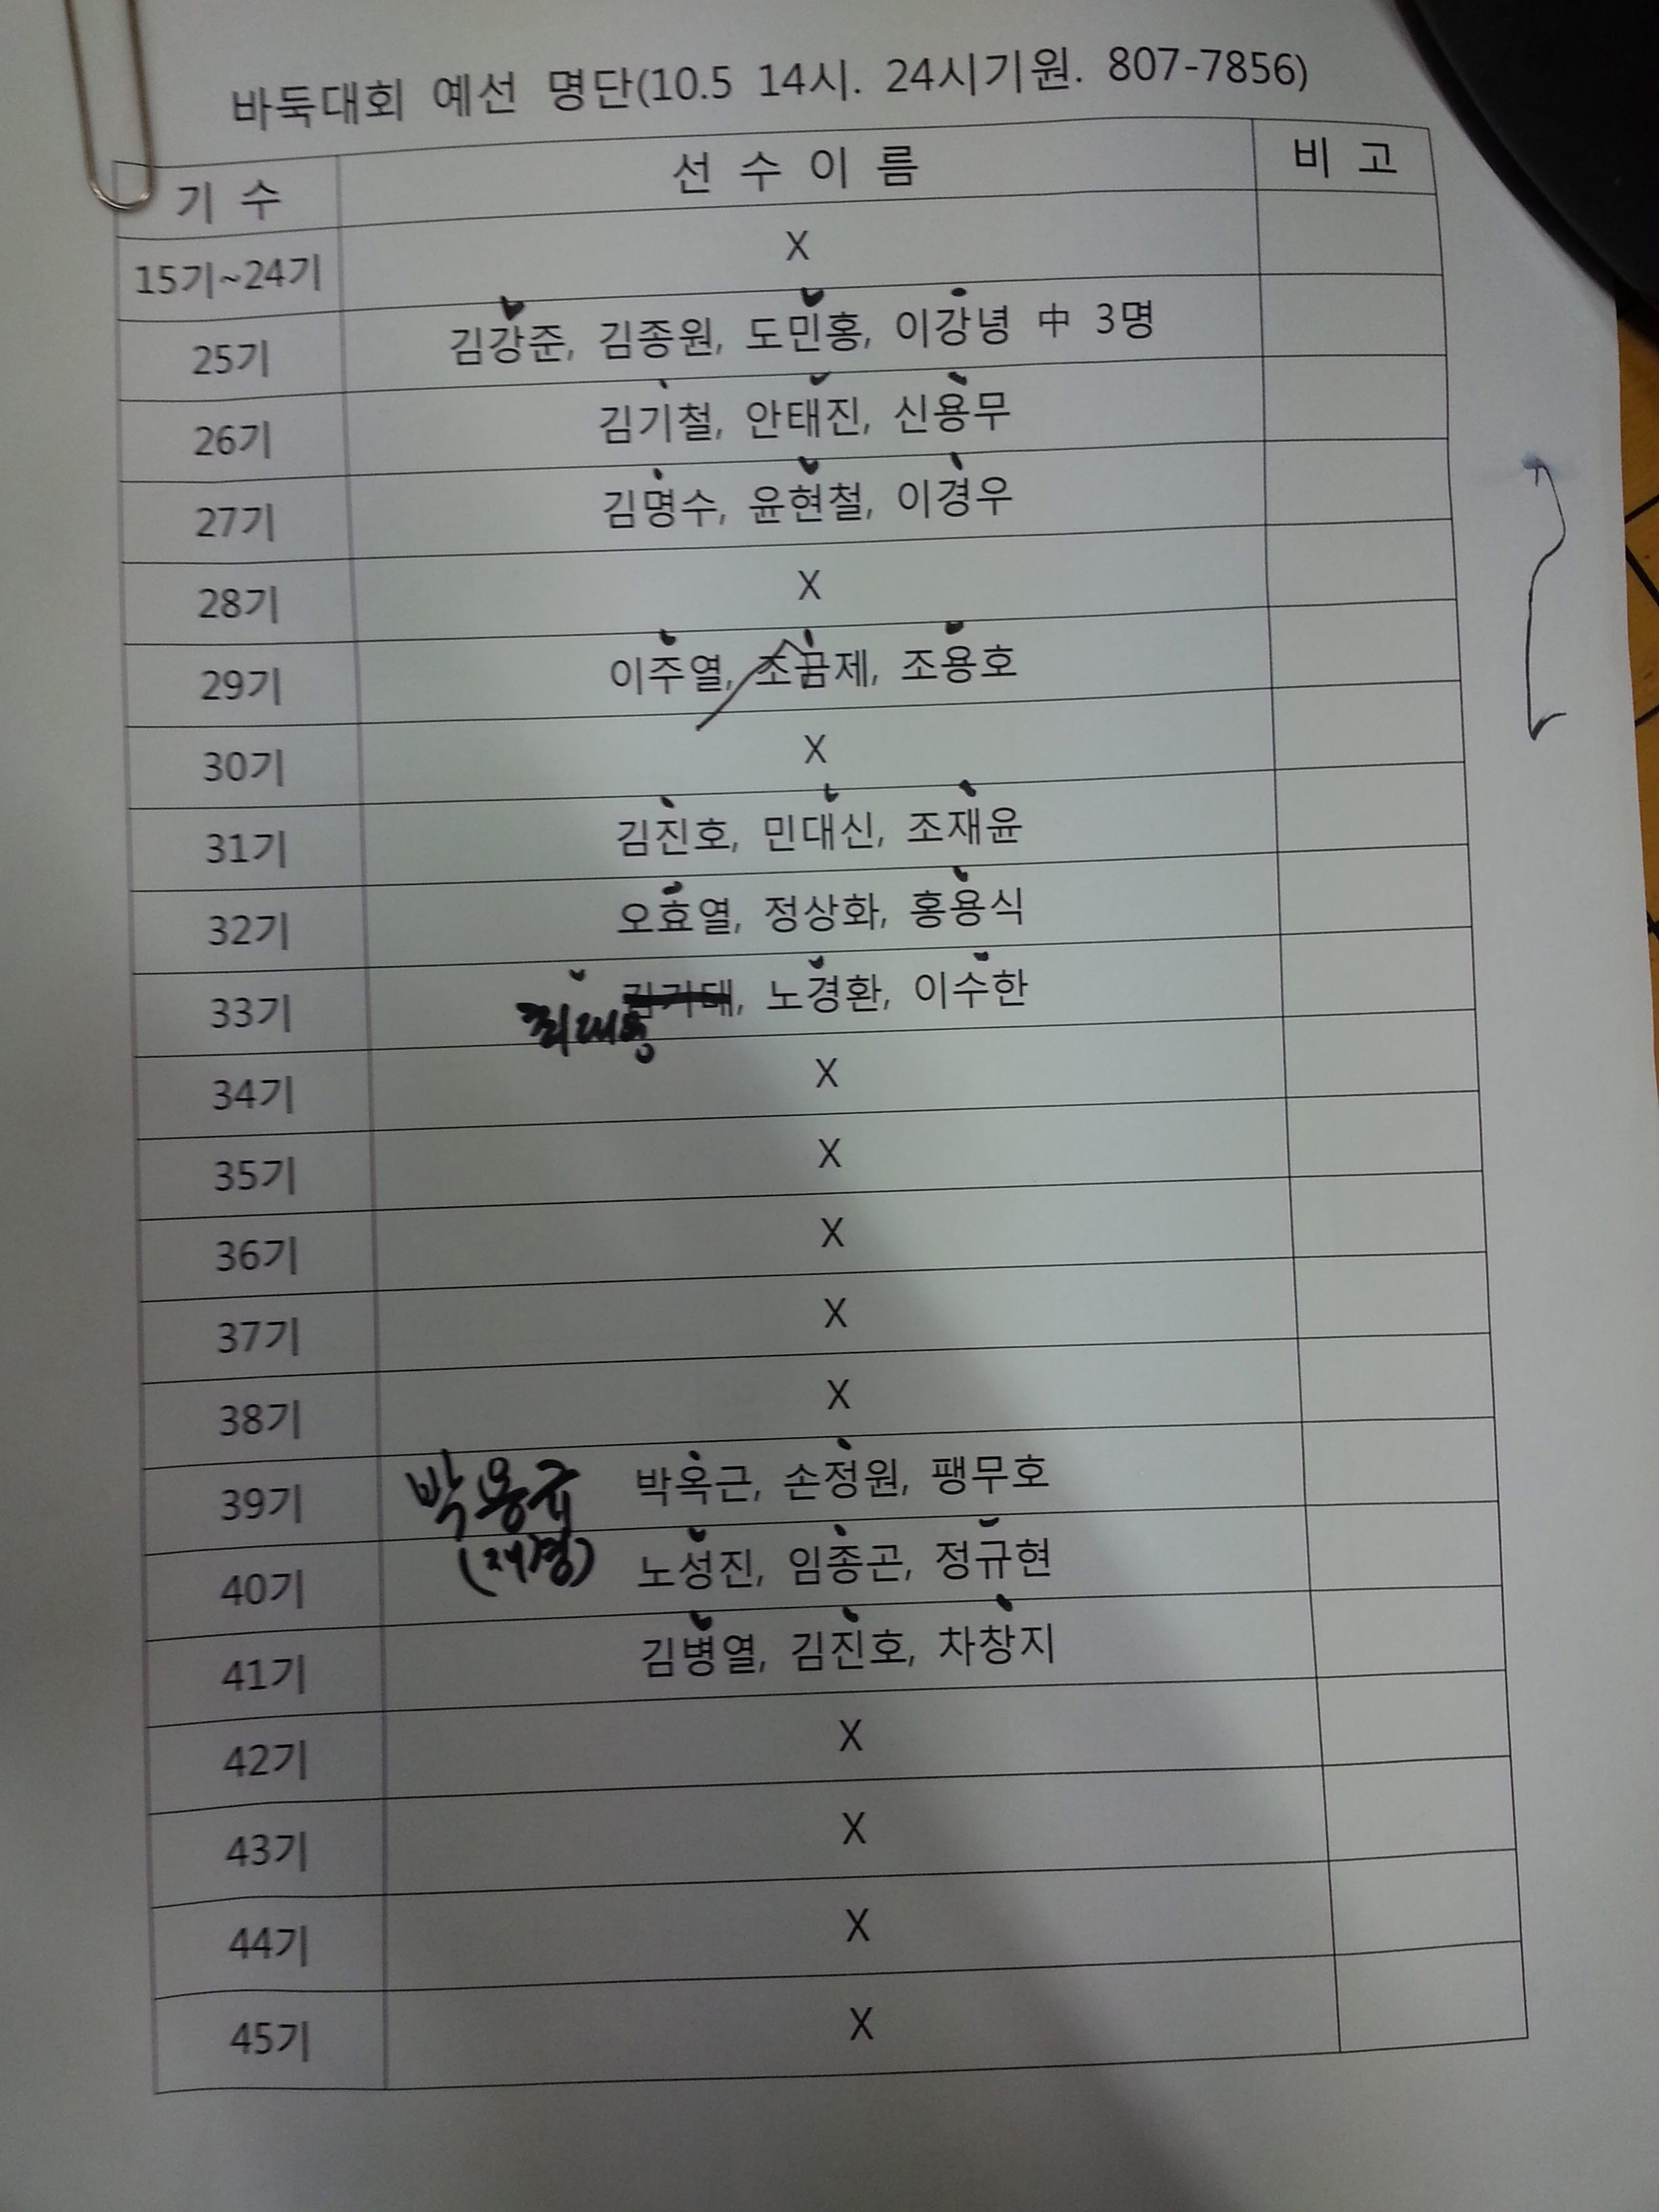 바둑대회 예선 명단(10.5 14시. 24시기원. 807-7856)
기 수 선 수 이 름 비 고
15기~24기 X
25기 김강준, 김종원, 도민홍, 이강녕 中 3명
26기 김기철, 안태진, 신용무
27기 김명수, 윤현철, 이경우
28기 X
29기 이주열, 조꿈제, 조용호
30기 X
31기 김진호, 민대신, 조재윤
32기 오효열, 정상화, 홍용식
33기 노경환, 이수한
34기 X
35기 X
36기 X
37기 X
38기 X
39기 박용규 박옥근, 손정원, 팽무호
(재경)
40기 노성진, 임종곤, 정규현
41기 김병열, 김진호, 차창지
42기 X
43기 X
44기 X
45기 X